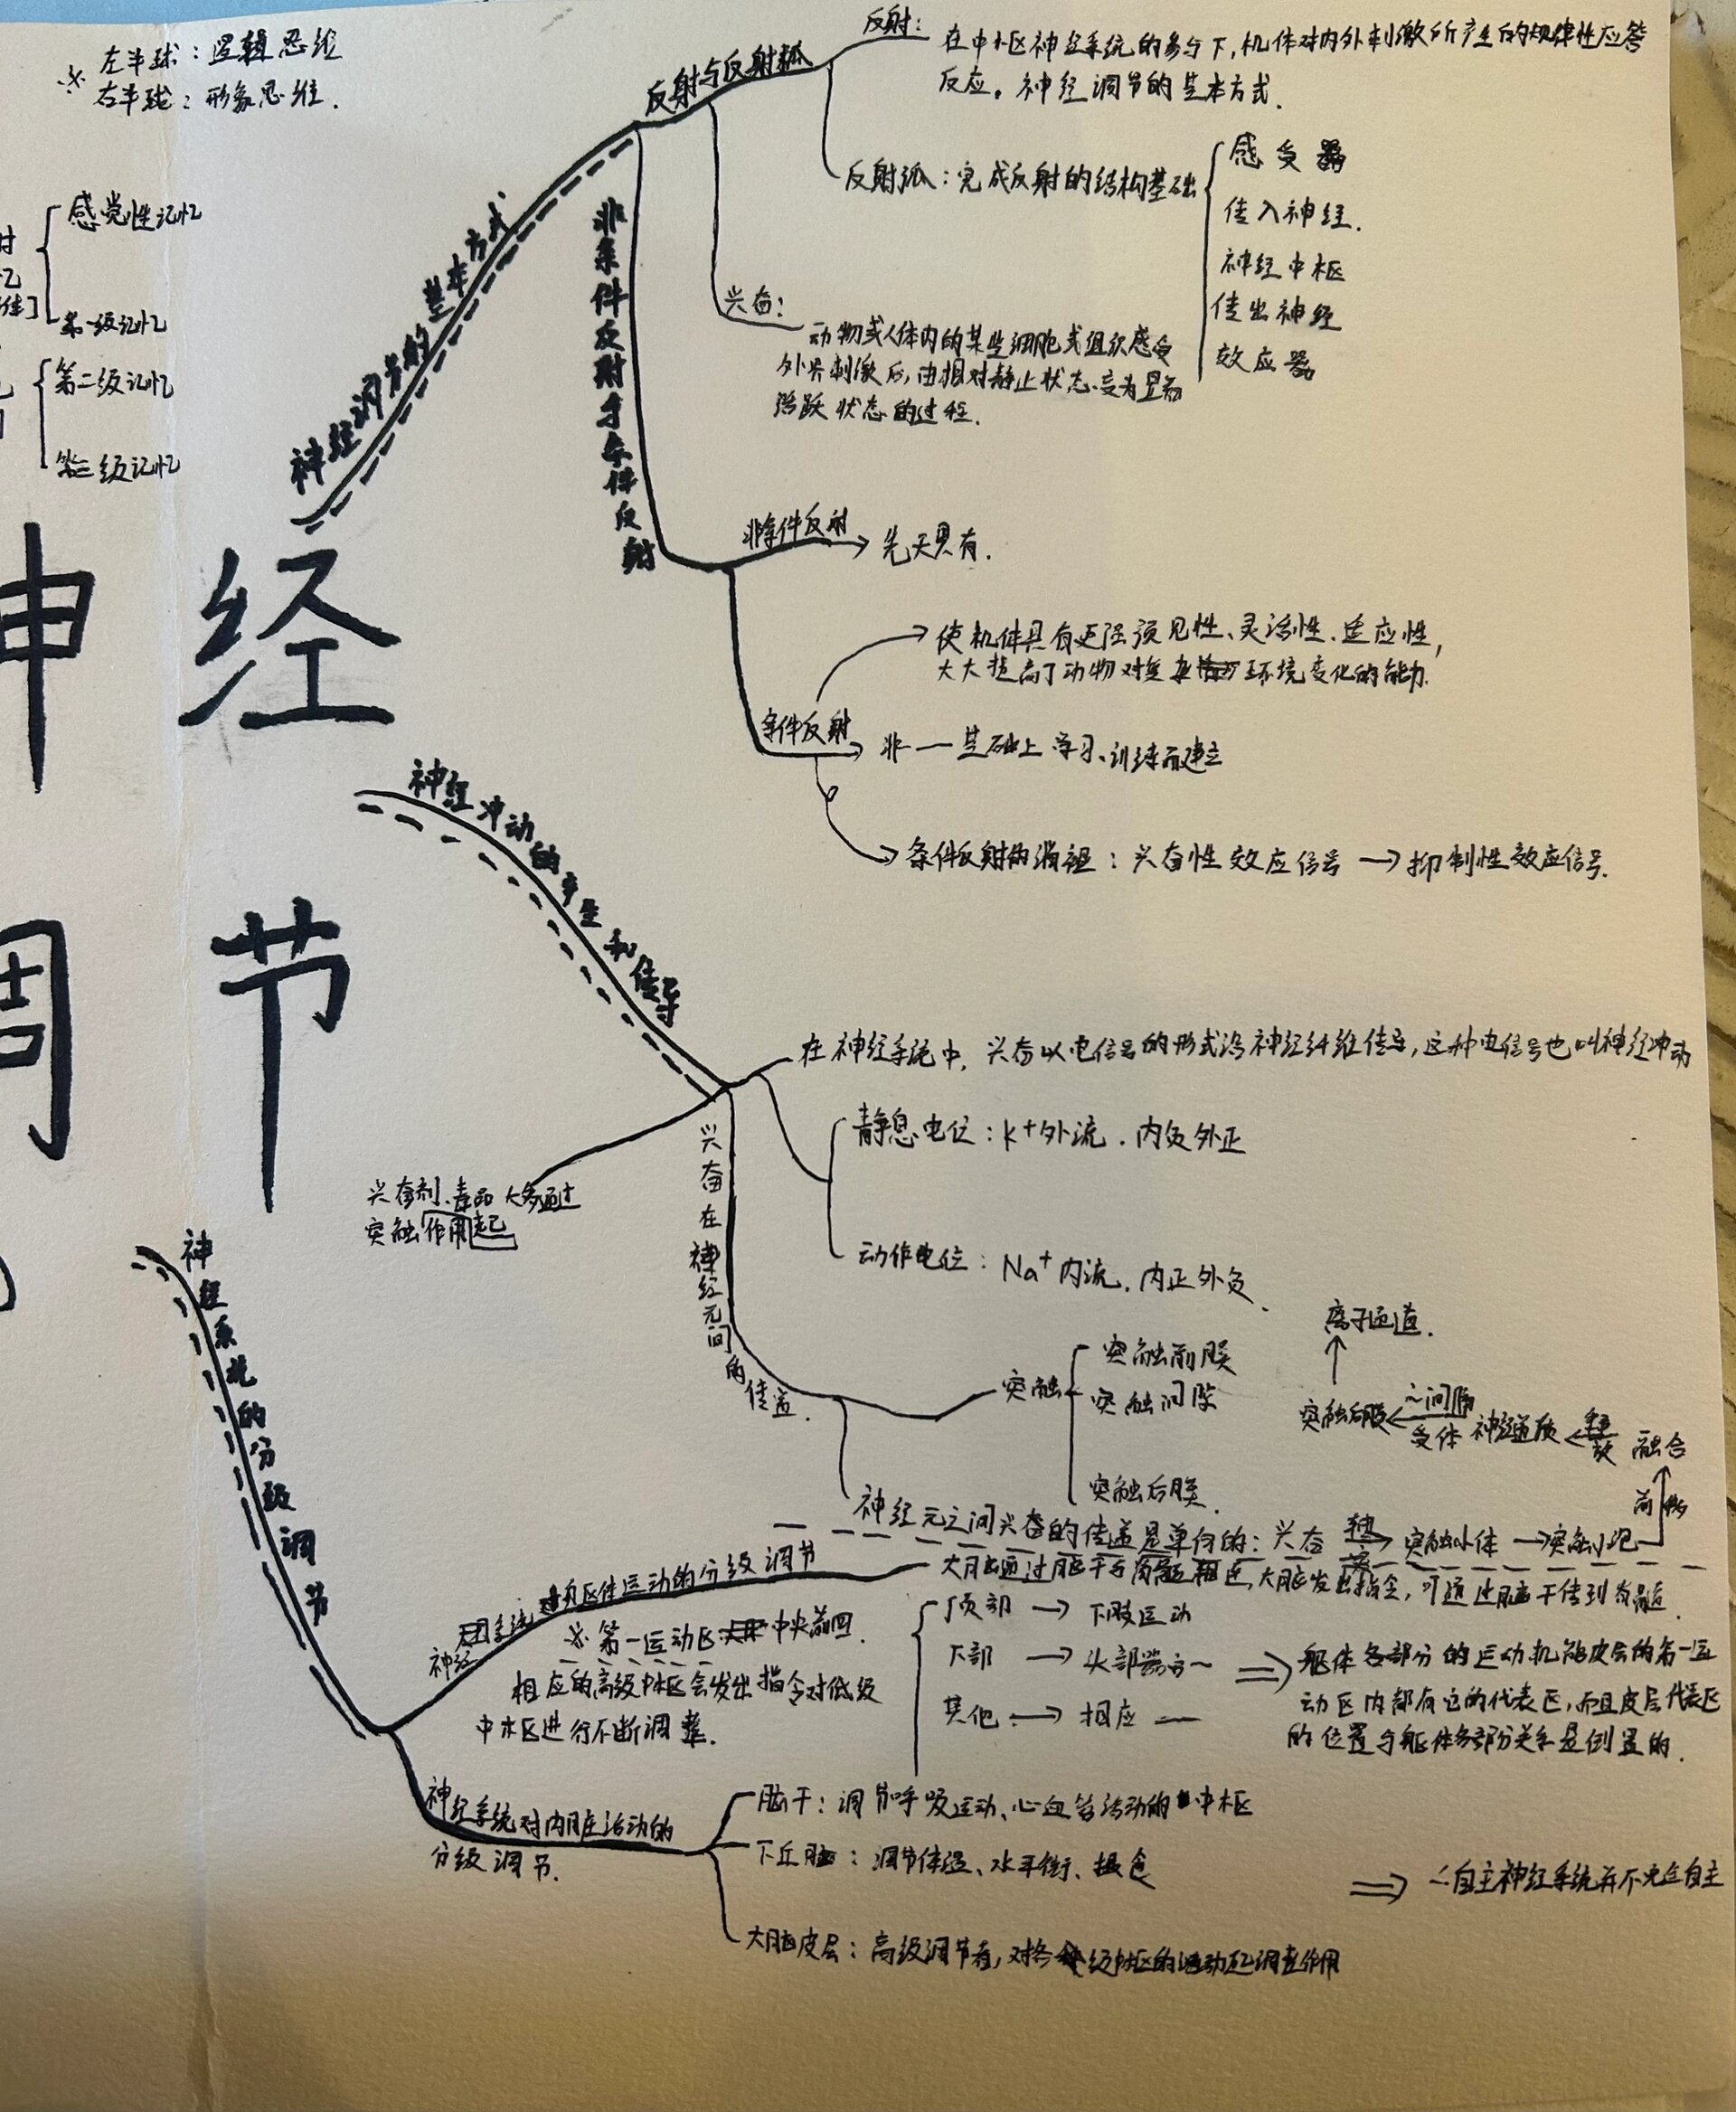 左半球：逻辑思维
右半球：形象思维.
感觉性记忆
第一级记忆
第二级记忆
第三级记忆
神经
调节
神经调节的基本方式
反射与反射弧
反射：
在中枢神经系统的参与下,机体对内外刺激所产生的规律性应答
反应。神经调节的基本方式.
反射弧：完成反射的结构基础
感受器
传入神经.
神经中枢
传出神经
效应器
兴奋：
动物或人体内的某些细胞或组织感受
外界刺激后,由相对静止状态变为显著
活跃状态的过程.
非条件反射与条件反射
非条件反射
先天具有.
条件反射
使机体具有更强预见性、灵活性.适应性,
大大提高了动物对复杂环境变化的能力.
非一基础上学习、训练而建立
条件反射的消退：兴奋性效应信号→抑制性效应信号.
神经冲动的产生和传导
在神经系统中,兴奋以电信号的形式沿神经纤维传导,这种电信号也叫神经冲动
静息电位：K+外流.内负外正
动作电位：Na+内流.内正外负.
兴奋剂、毒品大多通过
突触作用起
兴奋在神经元间的传递.
突触
突触前膜
突触间隙
突触后膜.
离子通道.
突触后膜←~间隙 受体 神经递质← 融合
神经元之间兴奋的传递是单向的：兴奋→突触小体→突触小泡
神经系统的分级调节
神经系统对躯体运动的分级调节
大脑通过脑干与脊髓相连,大脑发出指令,可通过脑干传到脊髓.
※第一运动区 中央前回.
相应的高级中枢会发出指令对低级
中枢进行不断调整.
顶部→下肢运动
下部→头部器官~
其他→相应一
⇒躯体各部分的运动机能皮层的第一运
动区内都有它的代表区,而且皮层代表区
的位置与躯体各部分关系是倒置的.
神经系统对内脏活动的
分级调节.
脑干：调节呼吸运动、心血管活动的中枢
下丘脑：调节体温、水平衡、摄食
大脑皮层：高级调节者,对各级中枢的活动起调整作用
⇒自主神经系统并不完全自主